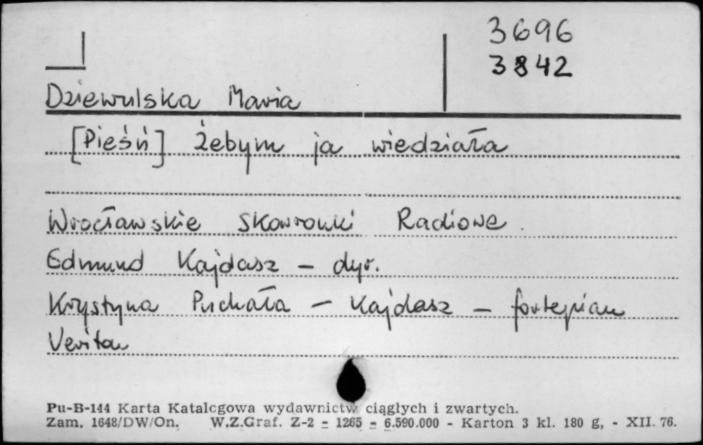 3696
3842
Dziewulska Maria
[Pieśń] Żebym ja wiedziała
Wrocławskie Skowronki Radiowe.
Edmund Kajdasz - dyr.
Krystyna Puchała - Kajdasz - fortepian
Veriton
Pu-B-144 Karta Katalogowa wydawnictw ciągłych i zwartych.
Zam. 1648/DW/On. W.Z.Graf. Z-2 - 1265 - 6.590.000 - Karton 3 kl. 180 g, - XII. 76.